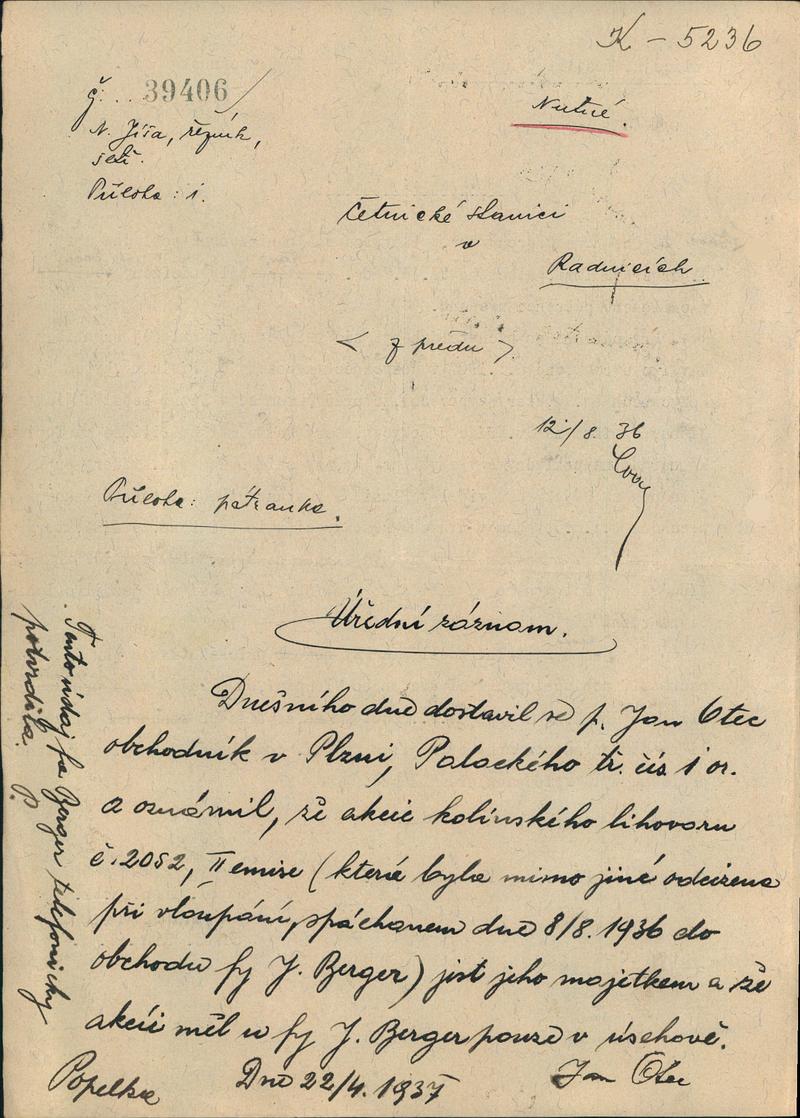 K - 5236
Č. .. 39406
Nutné.
N. Jíša, řezník,
šetř.
Příloha: 1.
četnické stanici
v
Radnicích
< z předu >
12/8. 36
Příloha: pátranka.
Úřední záznam.
Dnešního dne dostavil se p. Jan Otec
obchodník v Plzni, Palackého tř. čís 1 or.
a oznámil, že akcie kolínského lihovaru
č. 2052, II emise (která byla mimo jiné odcizena
při vloupání, spáchanem dne 8/8. 1936 do
obchodu fy J. Berger) jest jeho majetkem a že
akcii měl u fy J. Berger pouze v úschově.
Popelka Dne 22/4. 1937 Jan Otec
Tento údaj fa Berger telefonicky
potvrdila. P.